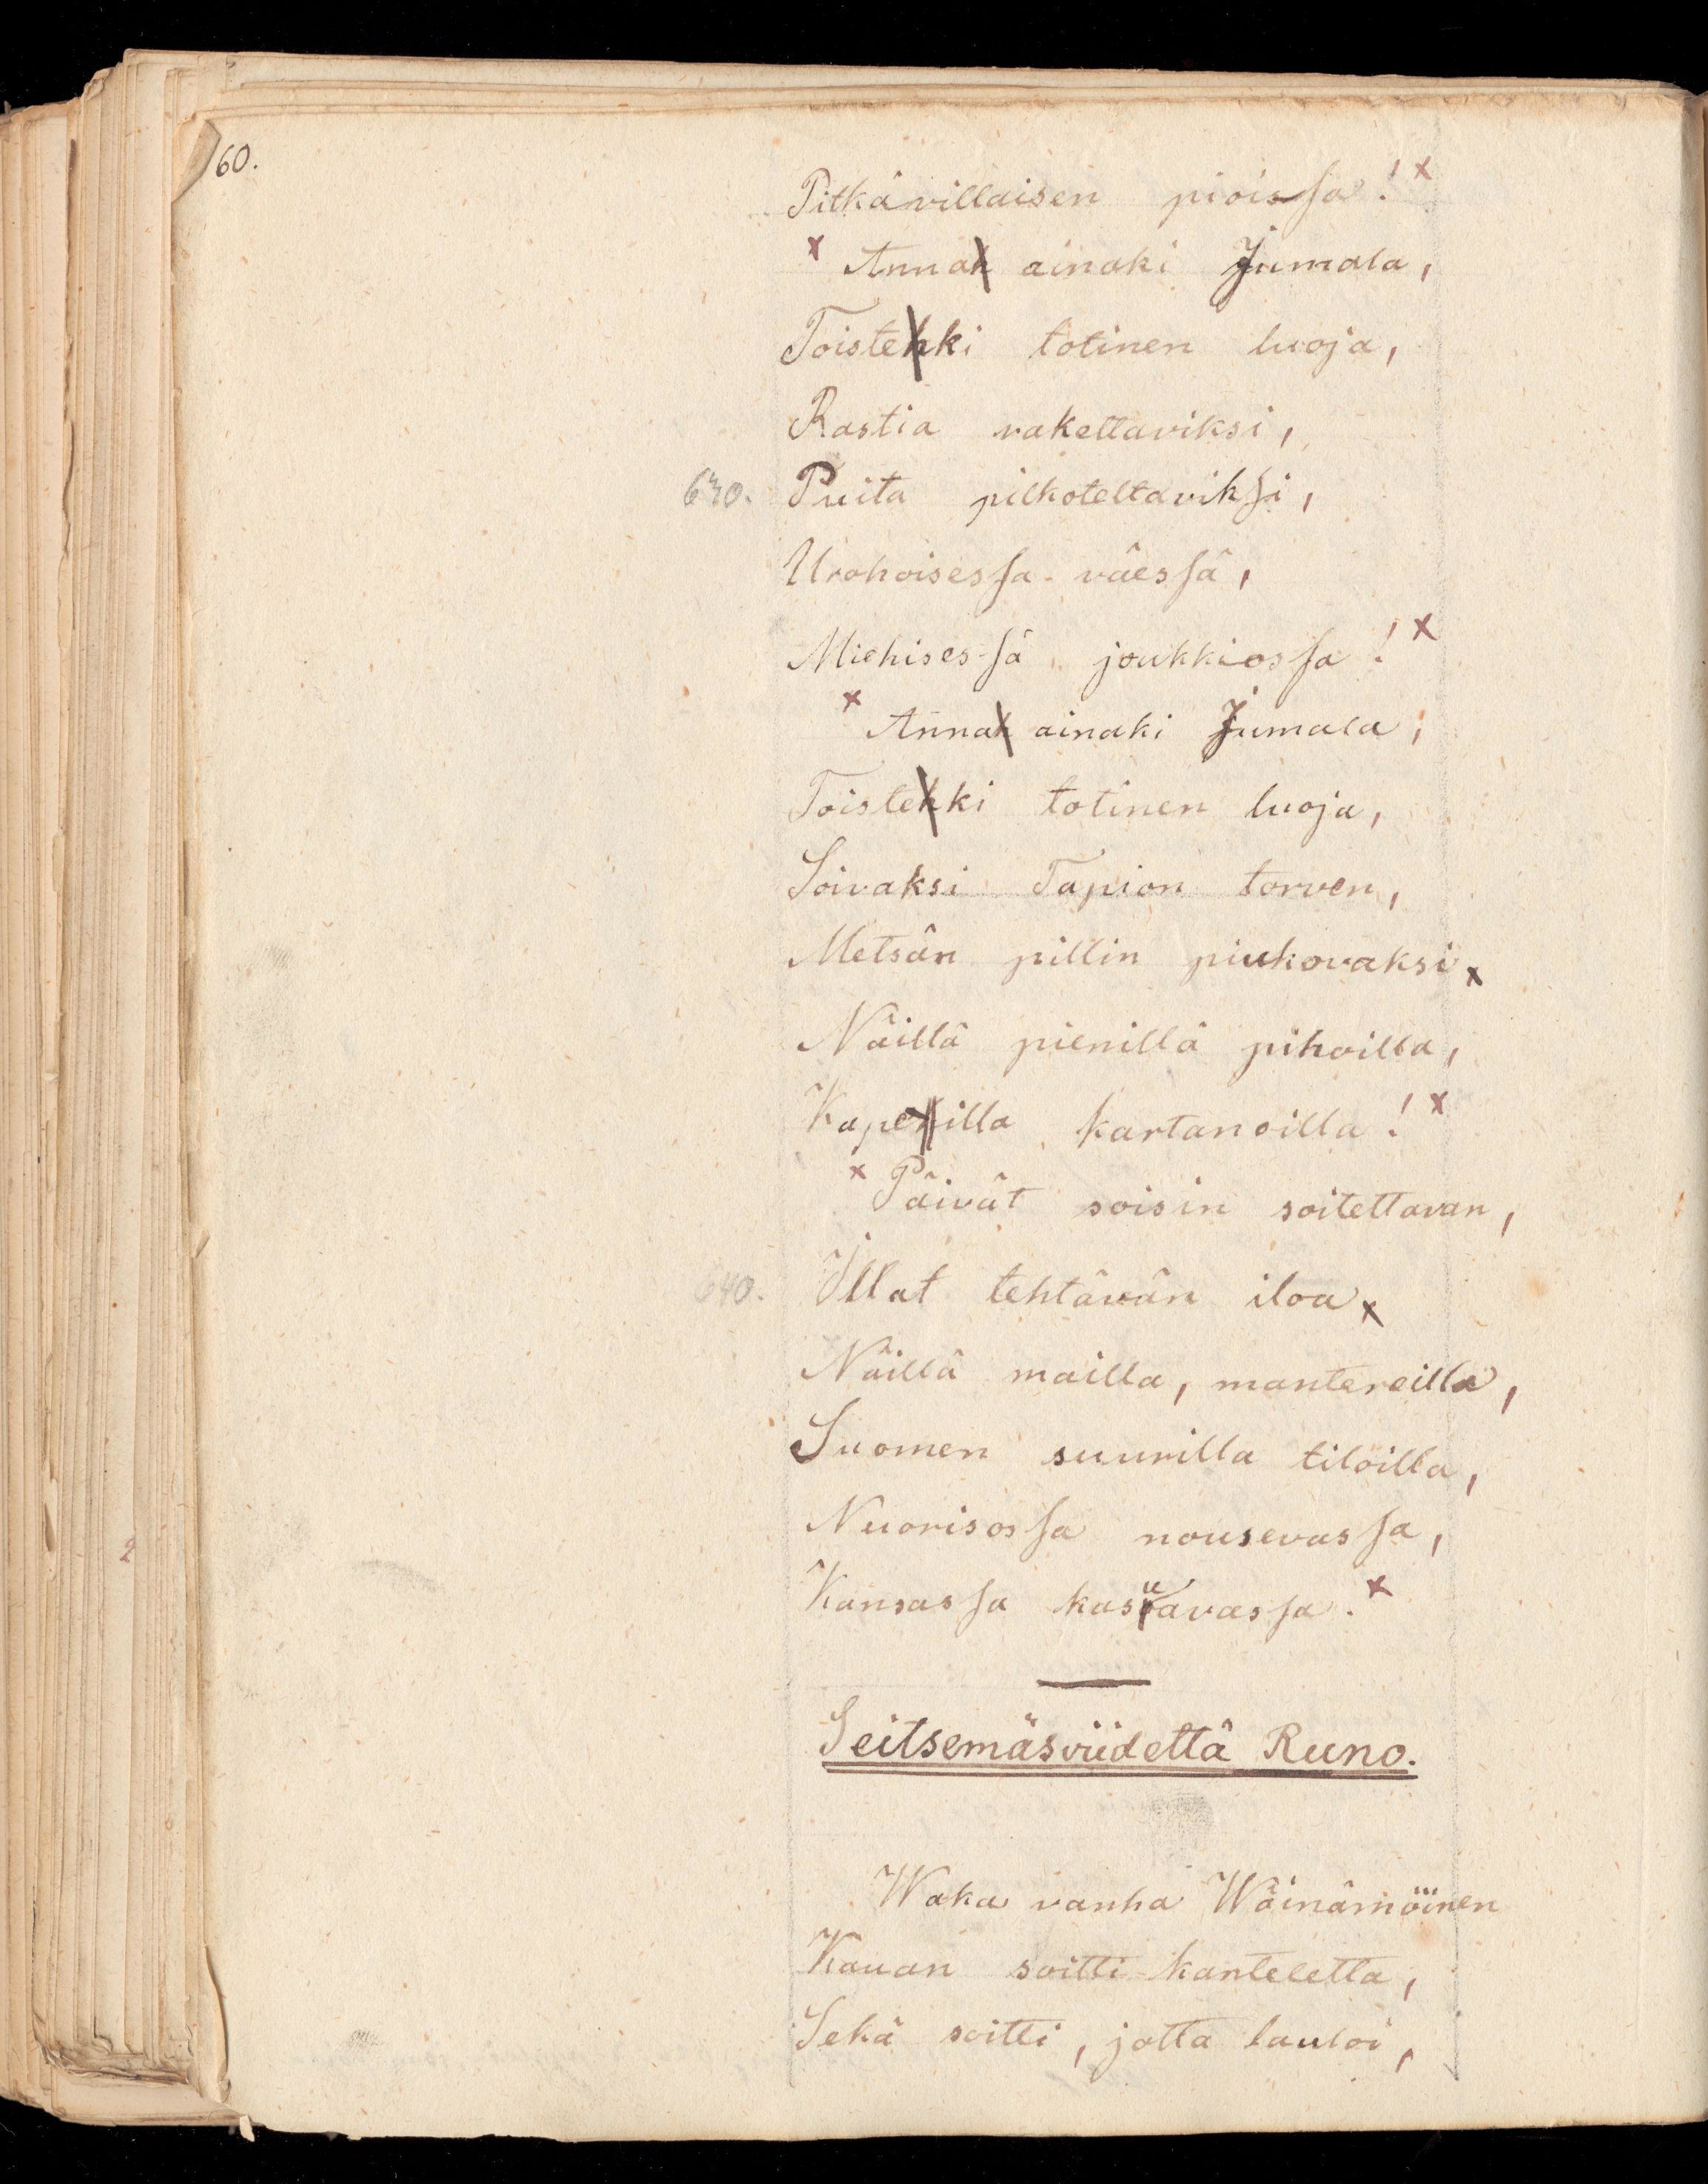 60.
Pitkävillaisen pioissa! x
x Annah ainaki Jumala,
Toistehki totinen luoja,
Rastia vakettaviksi,
630. Puita pilkoteltaviksi,
Urohoisessa väessä,
Miehisessä joukkiossa! x
x Annah ainaki Jumala,
Toistehki totinen luoja,
Soivaksi Tapion torven,
Metsän pillin piukovaksi x
Näillä pienillä pihoilla,
Kapehilla kartanoilla! x
x Päivät soisin soitettavan,
640. Illat tehtävän iloa x
Näillä mailla, mantereilla,
Suomen suurilla tiloilla,
Nuorisossa nousevassa,
Kansassa kasuavassa. x
Seitsemäsviidettä Runo.
Waka vanha Wäinämöinen
Kauan soitti kanteletta,
Sekä soitti, jotta lauloi,
2